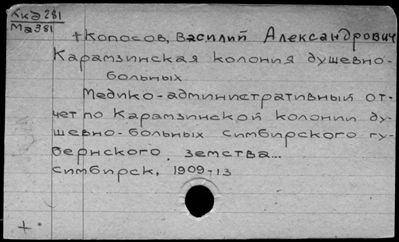 Ккд 281
Ма981
+Копосов, Василий Александрович
Карамзинская колония душевно-
больных
Медико-административный от-
чет по Карамзинской колонии ду-
шевно-больных симбирского гу-
бернского земства...
Симбирск, 1909-13
+